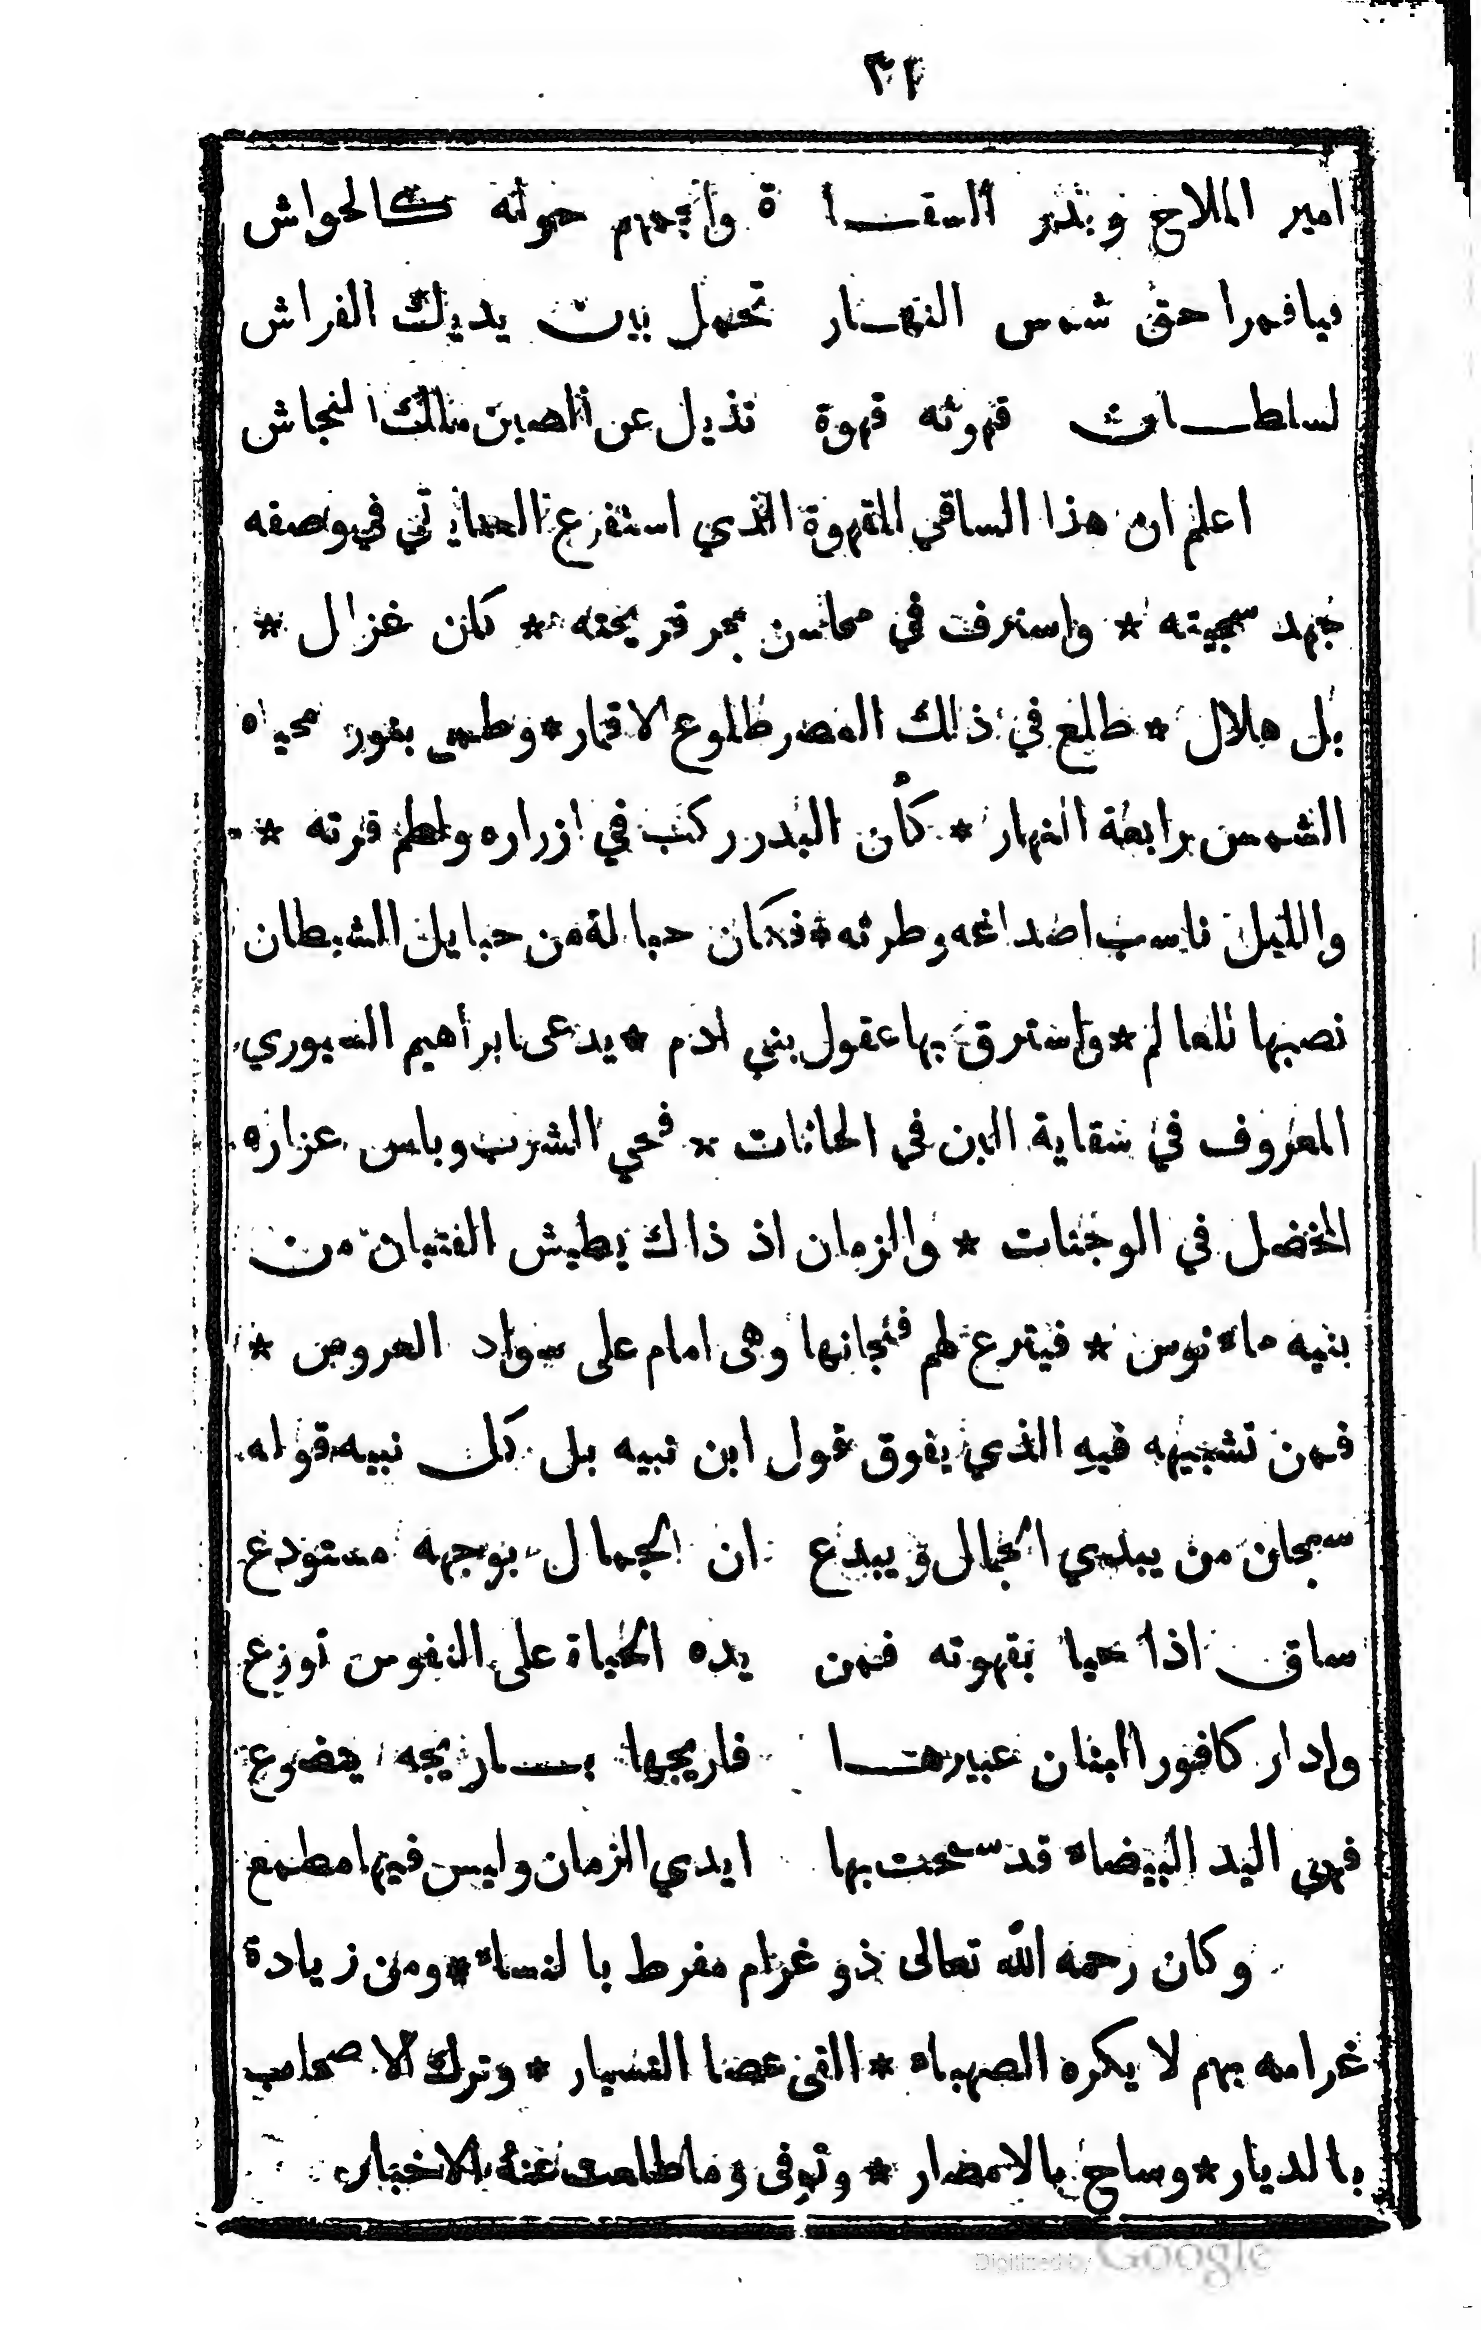 ٤٢
امير الملاح وبدر السقاة وانجهم حوله كالحواش
فيا قمرا حق شمس النهار تحمل بين يديك الفراش
لسلطان قهوته قهوة تذيل عن الصين ملك النجاش
اعلم ان هذا الساقي للقهوة الذي استفرغ العناياتي في وصفه
جهد سجيته * واستنزف في محاسن بحر قريحته * كان غزال *
بل هلال * طلع في ذلك العصر طلوع الاقمار * وطمس بنور محياه
الشمس برابعة النهار * كأن البدر ركب في ازراره ولطم قرته *
والليل ناسب اصداغه وطرته * فكان حبالة من حبايل الشيطان
نصبها للعالم * واسترق بها عقول بني ادم * يدعى ابراهيم السيوري
المعروف في سقاية البن في الحانات * فحي الشرب وباس عزاره
المخضل في الوجنات * والزمان اذ ذاك يطيش الفتيان من
بنيه مانوس * فيترع لهم فنجانها وهى امام على سواد العروس *
فمن تشبيهه فيه الذي يفوق قول ابن نبيه بل كل نبيه قوله
سبحان من يبدي الجمال ويبدع ان الجمال بوجهه مستودع
ساق اذا حيا بقهوته فمن يده الحياة على النفوس توزع
وادار كافور البنان عبيرها فاريجها بـاريجه يتضوع
فهي اليد البيضاء قد سمحت بها ايدي الزمان وليس فيها مطمع
وكان رحمه الله تعالى ذو غرام مفرط بالنساء * ومن زيادة
غرامه بهم لا يكره الصهباء * القى عصا التسيار * وترك الاصحاب
بالديار * وساح بالامصار * وتوفى وما طلعت عنه الاخبار
Digitized by Google